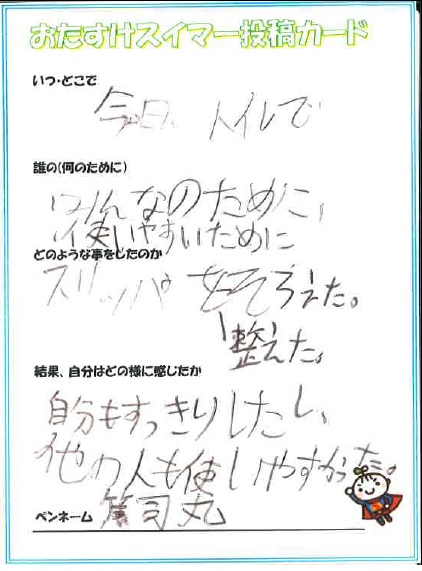 おたすけスイマー投稿カード
いつ・どこで
今日、トイレで
誰の(何のために)
みんなのために、
使いやすいために
どのような事をしたのか
スリッパをそろえた。
整えた。
結果、自分はどの様に感じたか
自分もすっきりしたし、
他の人も使いやすかった。
ペンネーム 篤司丸